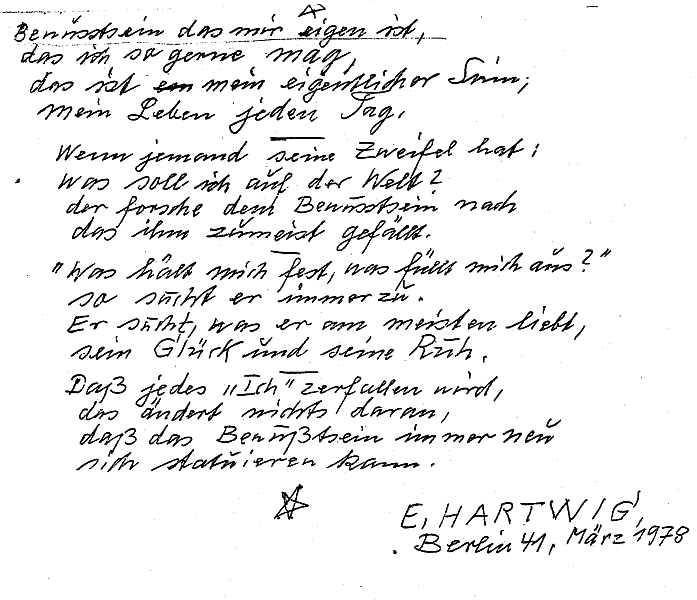 Bewusstsein das mir eigen ist,
das ich so gerne mag,
das ist mein eigentlicher Sinn;
mein Leben jeden Tag.
Wenn jemand seine Zweifel hat:
was soll ich auf der Welt?
der forsche dem Bewusstsein nach
das ihm zumeist gefällt.
"Was hält mich fest, was füllt mich aus?"
so sucht er immerzu.
Er sucht, was er am meisten liebt,
sein Glück und seine Ruh.
Daß jedes "Ich" zerfallen wird,
das ändert nichts daran,
daß das Bewußtsein immer neu
sich statuieren kann.
E. HARTWIG,
Berlin 41, März 1978